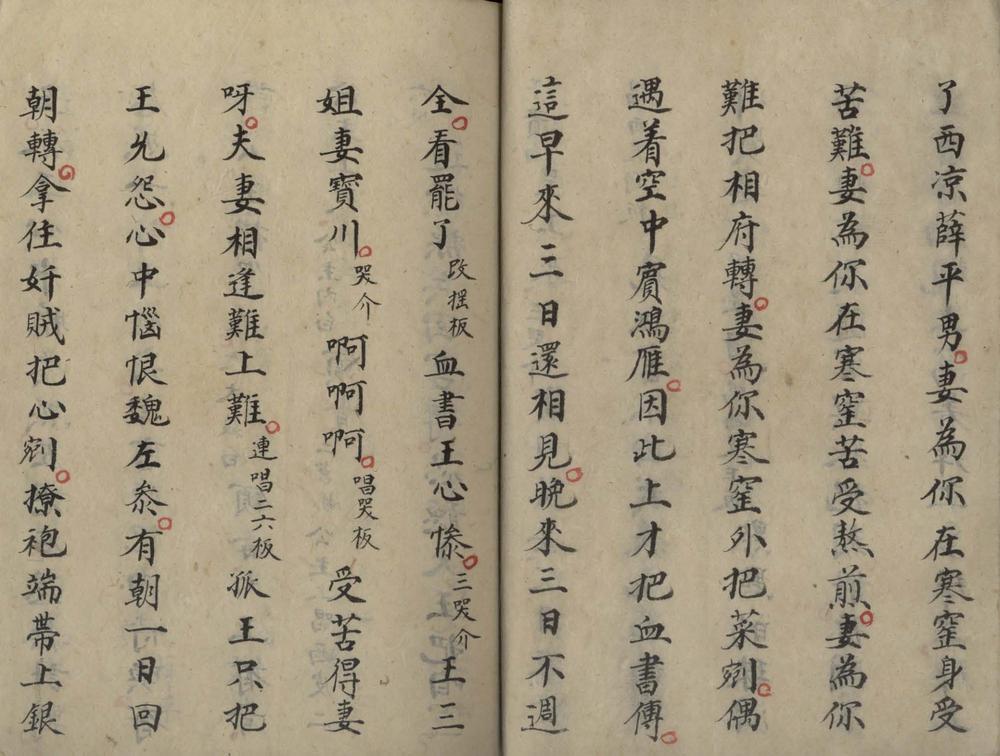 了西凉薛平男。妻為你在寒窑身受
苦難。妻為你在寒窑苦受熬煎。妻為你
難把相府轉。妻為你寒窑外把菜剜。偶
遇着空中賓鴻雁。因此上才把血書傳。
這早來三日還相見。晚來三日不週
全。看罷了改摇板血書王心惨。三哭介王三
姐妻寶川。哭介啊啊啊。唱哭板受苦得妻
呀。夫妻相逢難上難。連唱二六板孤王只把
王允怨。心中惱恨魏左叅。有朝一日回
朝轉。拿住奸賊把心剜。撩袍端帶上銀